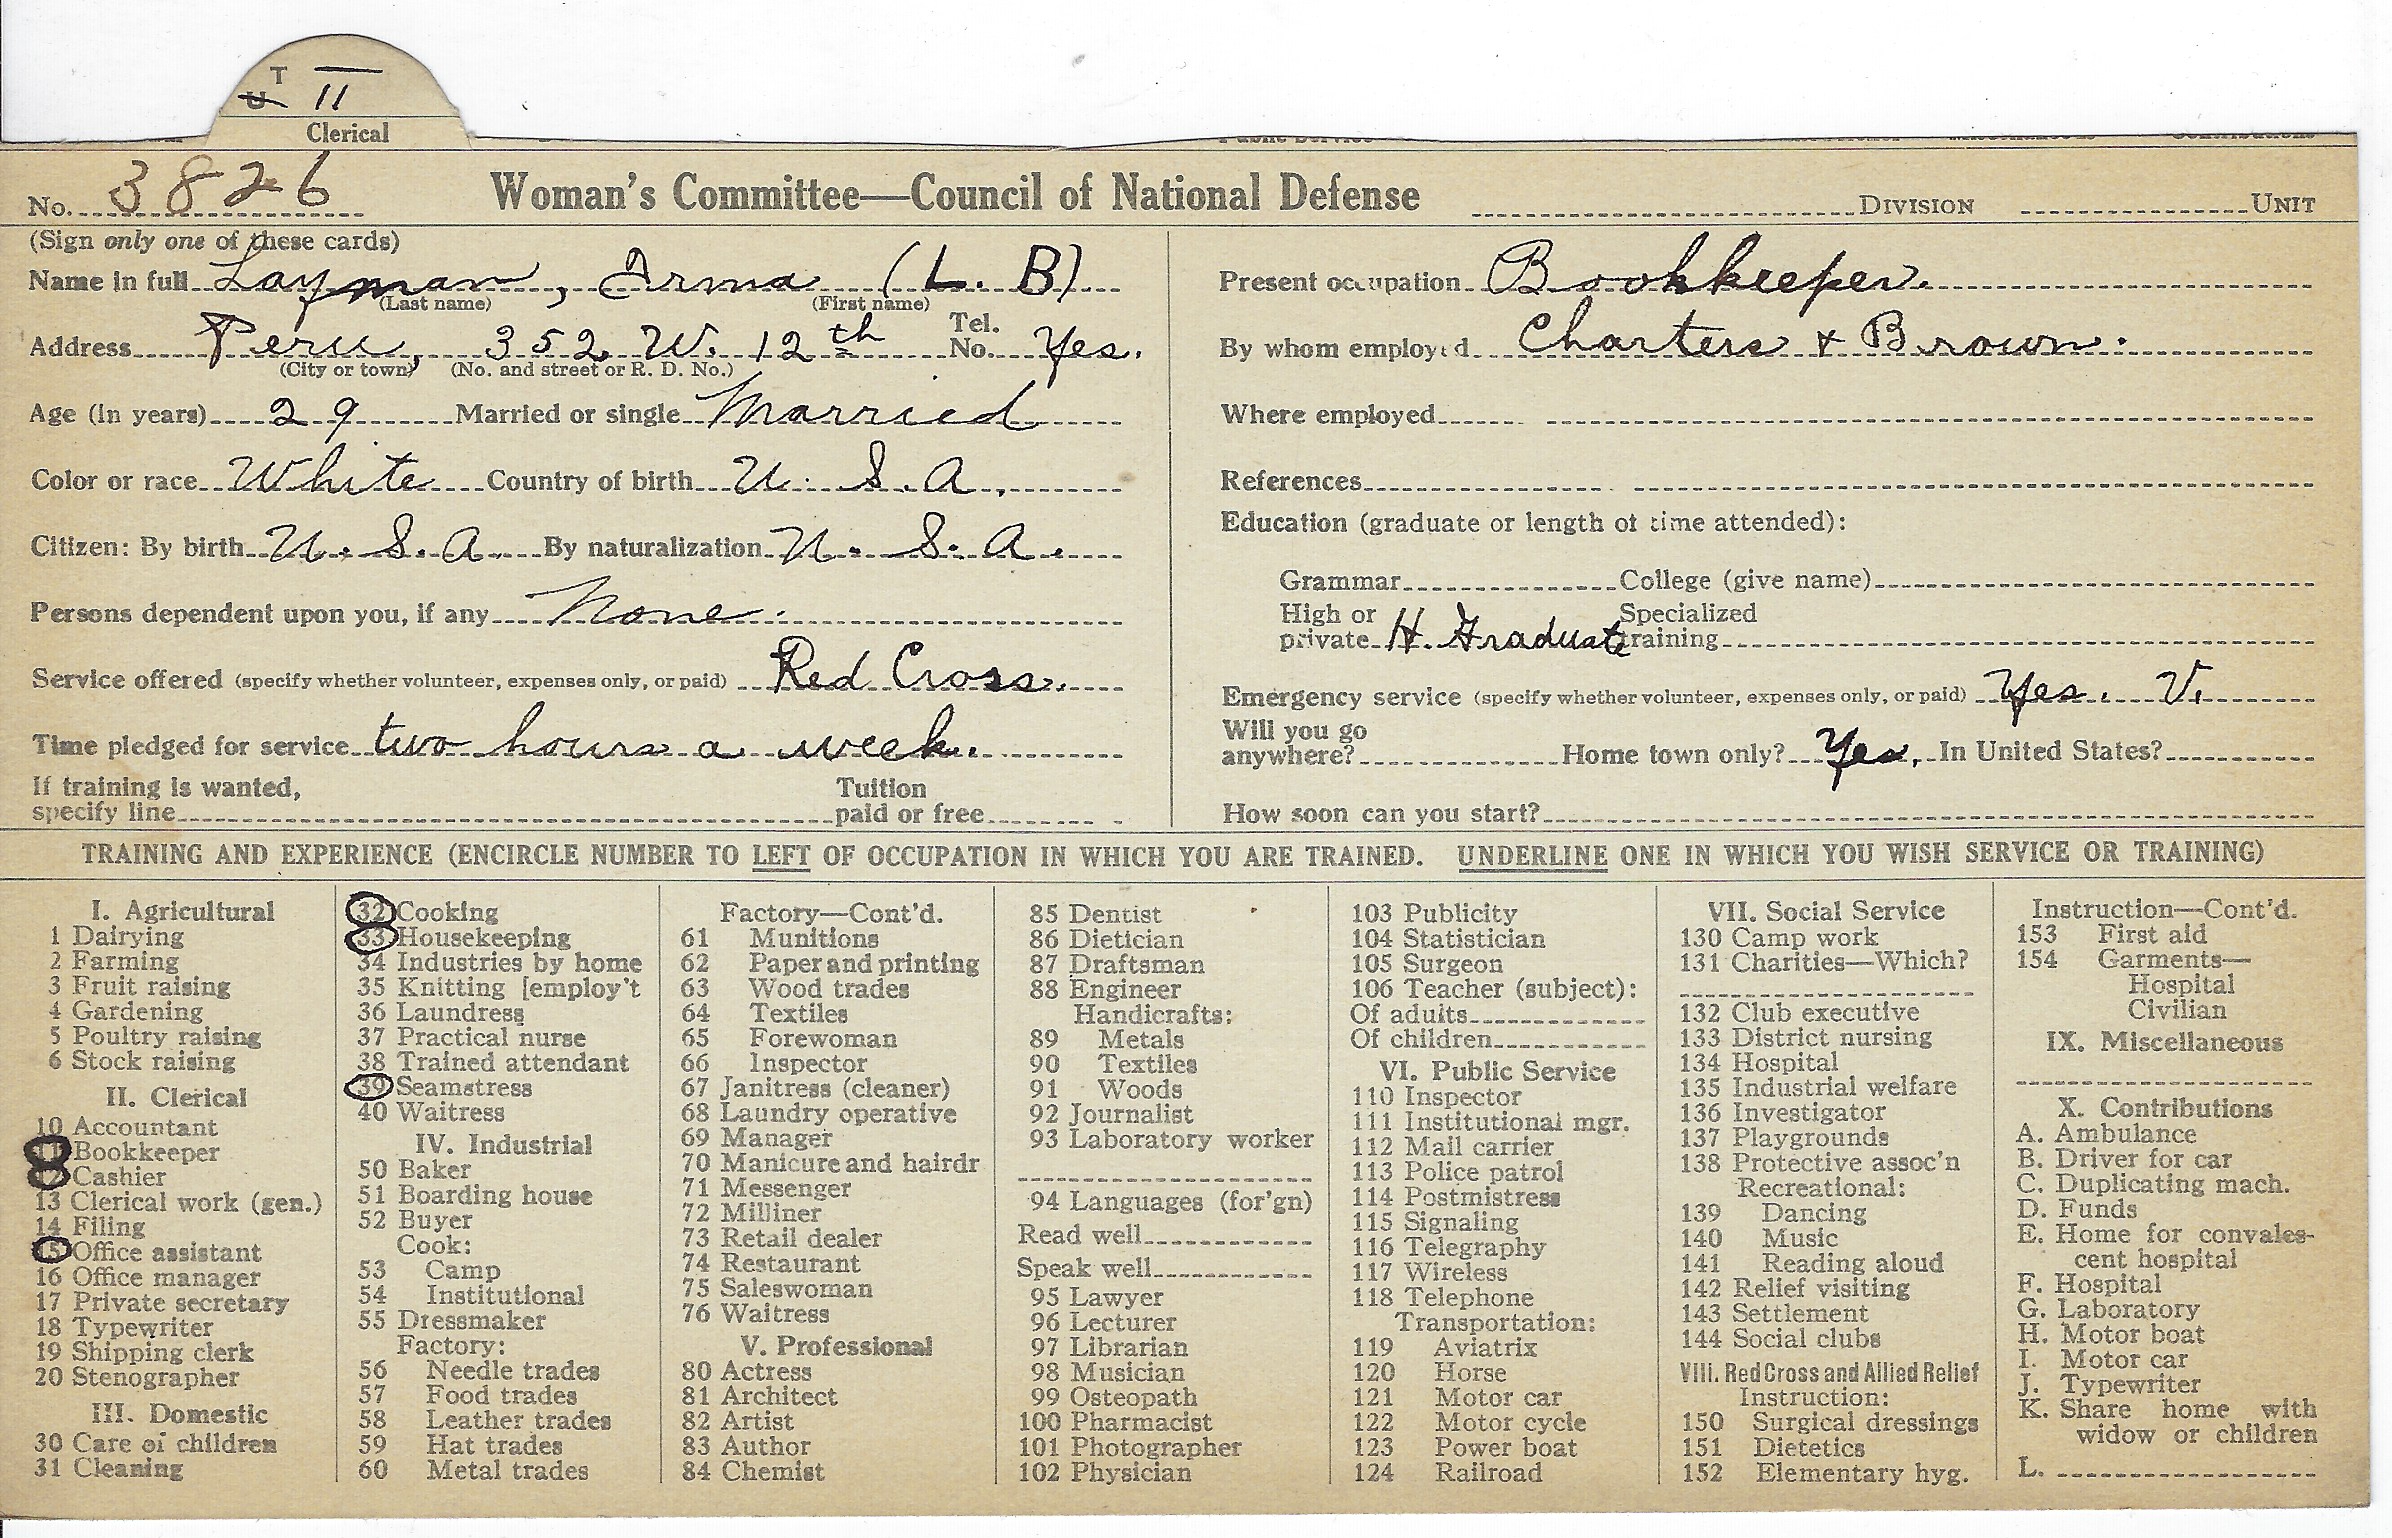 T
U II
Clerical
No. 3826 Woman's Committee—Council of National Defense DIVISION UNIT
(Sign only one of these cards)
Name in full Layman, Arma (L. B)
(Last name) (First name)
Address Peru, 352 W. 12th Tel. No. Yes.
(City or town) (No. and street or R. D. No.)
Age (in years) 29 Married or single Married
Color or race White Country of birth U. S. A.
Citizen: By birth U. S. A. By naturalization U. S. A.
Persons dependent upon you, if any None.
Service offered (specify whether volunteer, expenses only, or paid) Red Cross.
Time pledged for service two hours a week.
If training is wanted,
specify line Tuition paid or free
Present occupation Bookkeeper.
By whom employed Charters & Brown.
Where employed
References
Education (graduate or length of time attended):
Grammar College (give name)
High or private H. Graduate Specialized training
Emergency service (specify whether volunteer, expenses only, or paid) Yes. V.
Will you go
anywhere? Home town only? Yes, In United States?
How soon can you start?
TRAINING AND EXPERIENCE (ENCIRCLE NUMBER TO LEFT OF OCCUPATION IN WHICH YOU ARE TRAINED. UNDERLINE ONE IN WHICH YOU WISH SERVICE OR TRAINING)
I. Agricultural
1 Dairying
2 Farming
3 Fruit raising
4 Gardening
5 Poultry raising
6 Stock raising
II. Clerical
10 Accountant
11 Bookkeeper
12 Cashier
13 Clerical work (gen.)
14 Filing
15 Office assistant
16 Office manager
17 Private secretary
18 Typewriter
19 Shipping clerk
20 Stenographer
III. Domestic
30 Care of children
31 Cleaning
32 Cooking
33 Housekeeping
34 Industries by home
35 Knitting [employ't
36 Laundress
37 Practical nurse
38 Trained attendant
39 Seamstress
40 Waitress
IV. Industrial
50 Baker
51 Boarding house
52 Buyer
Cook:
53 Camp
54 Institutional
55 Dressmaker
Factory:
56 Needle trades
57 Food trades
58 Leather trades
59 Hat trades
60 Metal trades
Factory—Cont'd.
61 Munitions
62 Paper and printing
63 Wood trades
64 Textiles
65 Forewoman
66 Inspector
67 Janitress (cleaner)
68 Laundry operative
69 Manager
70 Manicure and hairdr
71 Messenger
72 Milliner
73 Retail dealer
74 Restaurant
75 Saleswoman
76 Waitress
V. Professional
80 Actress
81 Architect
82 Artist
83 Author
84 Chemist
85 Dentist
86 Dietician
87 Draftsman
88 Engineer
Handicrafts:
89 Metals
90 Textiles
91 Woods
92 Journalist
93 Laboratory worker
94 Languages (for'gn)
Read well
Speak well
95 Lawyer
96 Lecturer
97 Librarian
98 Musician
99 Osteopath
100 Pharmacist
101 Photographer
102 Physician
103 Publicity
104 Statistician
105 Surgeon
106 Teacher (subject):
Of adults
Of children
VI. Public Service
110 Inspector
111 Institutional mgr.
112 Mail carrier
113 Police patrol
114 Postmistress
115 Signaling
116 Telegraphy
117 Wireless
118 Telephone
Transportation:
119 Aviatrix
120 Horse
121 Motor car
122 Motor cycle
123 Power boat
124 Railroad
VII. Social Service
130 Camp work
131 Charities—Which?
132 Club executive
133 District nursing
134 Hospital
135 Industrial welfare
136 Investigator
137 Playgrounds
138 Protective assoc'n
Recreational:
139 Dancing
140 Music
141 Reading aloud
142 Relief visiting
143 Settlement
144 Social clubs
VIII. Red Cross and Allied Relief
Instruction:
150 Surgical dressings
151 Dietetics
152 Elementary hyg.
Instruction—Cont'd.
153 First aid
154 Garments—
Hospital
Civilian
IX. Miscellaneous
X. Contributions
A. Ambulance
B. Driver for car
C. Duplicating mach.
D. Funds
E. Home for convales-
cent hospital
F. Hospital
G. Laboratory
H. Motor boat
I. Motor car
J. Typewriter
K. Share home with
widow or children
L.